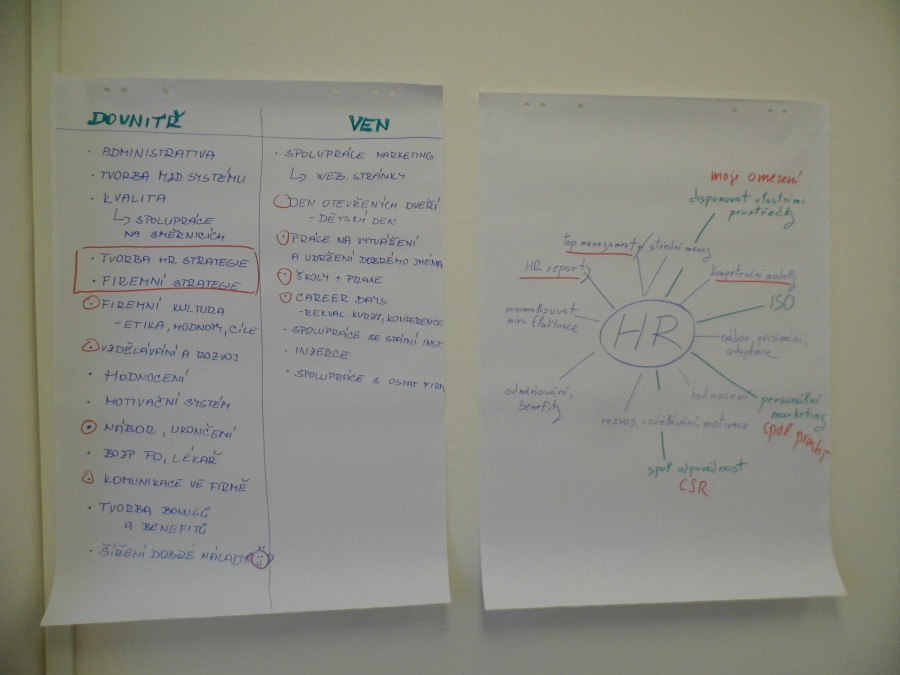 DOVNITŘ
· ADMINISTRATIVA
· TVORBA MZD SYSTÉMU
· KVALITA
↳ SPOLUPRÁCE
NA SMĚRNICÍCH
· TVORBA HR STRATEGIE
· FIREMNÍ STRATEGIE
· FIREMNÍ KULTURA
- ETIKA, HODNOTY, CÍLE
· VZDĚLÁVÁNÍ A ROZVOJ
· HODNOCENÍ
· MOTIVAČNÍ SYSTÉM
· NÁBOR, UKONČENÍ
· BOZP PO, LÉKAŘ
· KOMUNIKACE VE FIRMĚ
· TVORBA BONUSŮ
A BENEFITŮ
· ŠÍŘENÍ DOBRÉ NÁLADY
VEN
· SPOLUPRÁCE MARKETING
↳ WEB. STRÁNKY
· DEN OTEVŘENÝCH DVEŘÍ
- DĚTSKÝ DEN
· PRÁCE NA VYTVÁŘENÍ
A UDRŽENÍ DOBRÉHO JMÉNA
· ŠKOLY + PRAXE
· CAREER DAYS
- REKVAL. KURZY, KONFERENCE
· SPOLUPRÁCE SE STÁTNÍ INST.
· INZERCE
· SPOLUPRÁCE S OSTAT FIRM
moje omezení
disponovat vlastními
prostředky
top management + střední manag
HR report
kompetenční modely
ISO
minimalizovat
fluktuace
HR
nábor, přijímání,
adaptace
odměňování,
benefity
hodnocení
personální
marketing
rozvoj, vzdělávání, motivace
spol. odpovědnost
CSR